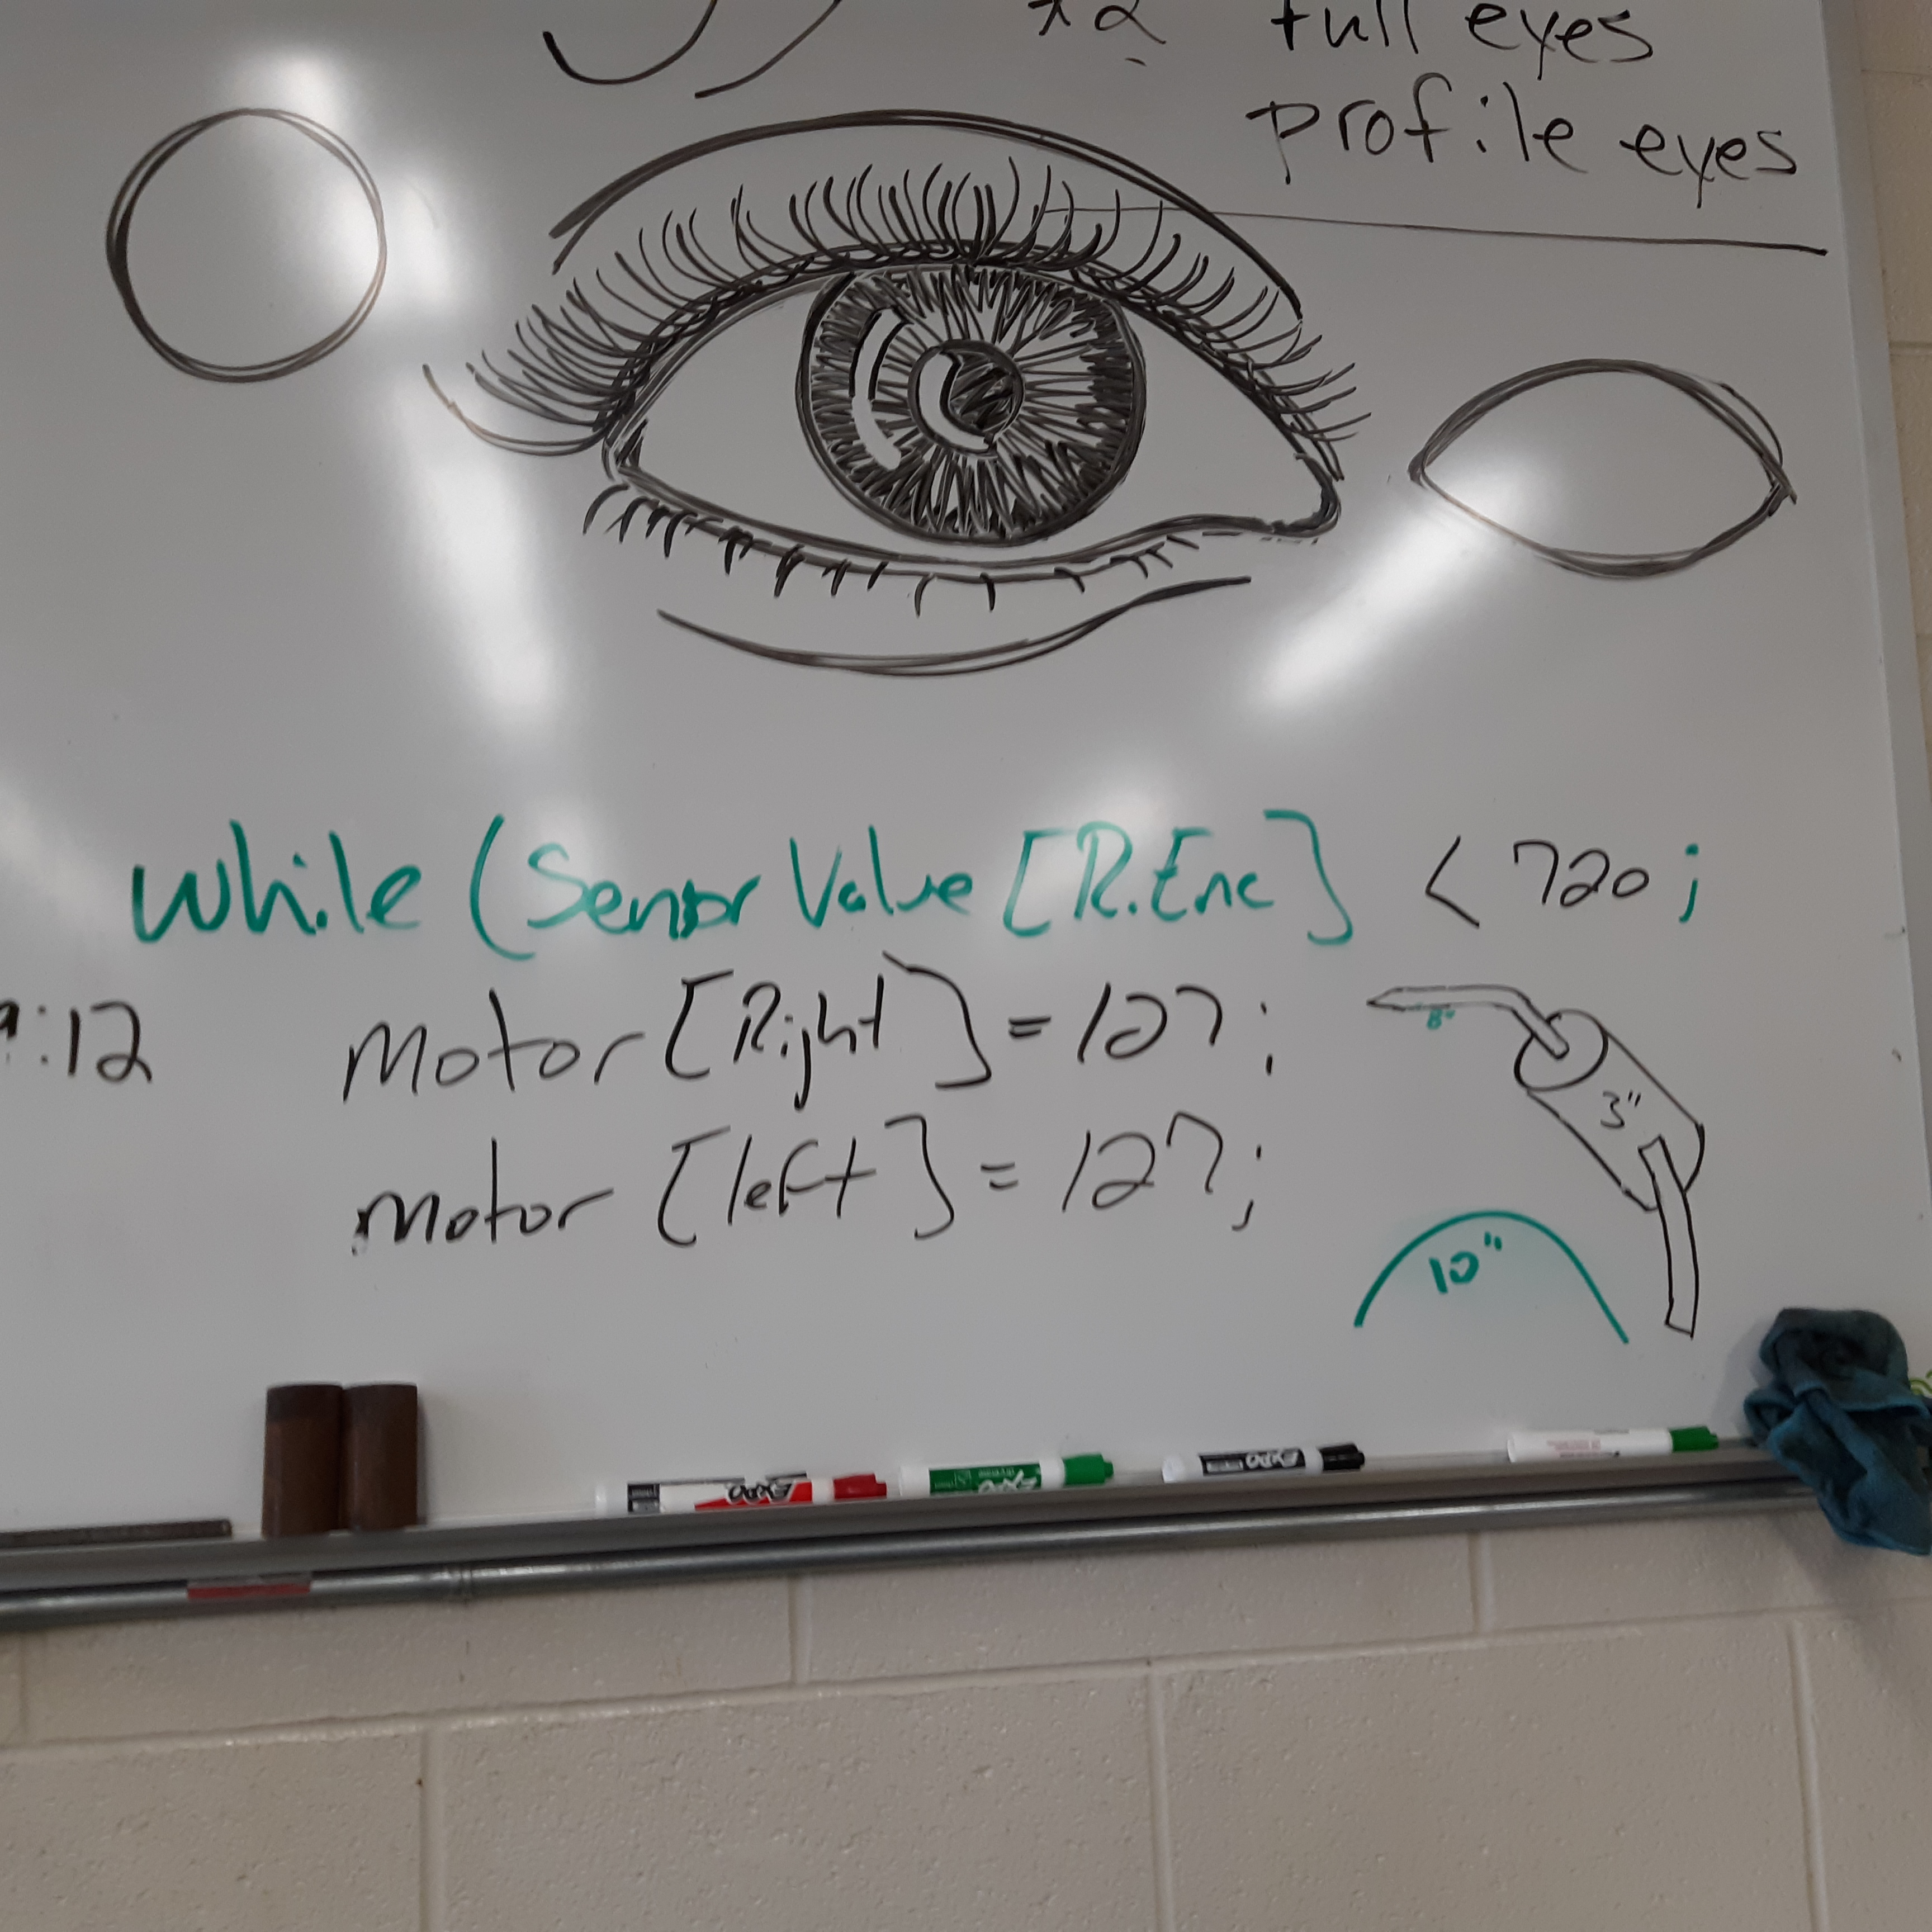 full eyes
profile eyes
while (Sensor Value [R.Enc] < 720;
:12
Motor [Right] = 127;
8"
3"
motor [left] = 127;
10"
EXPO
EXPO
EXPO